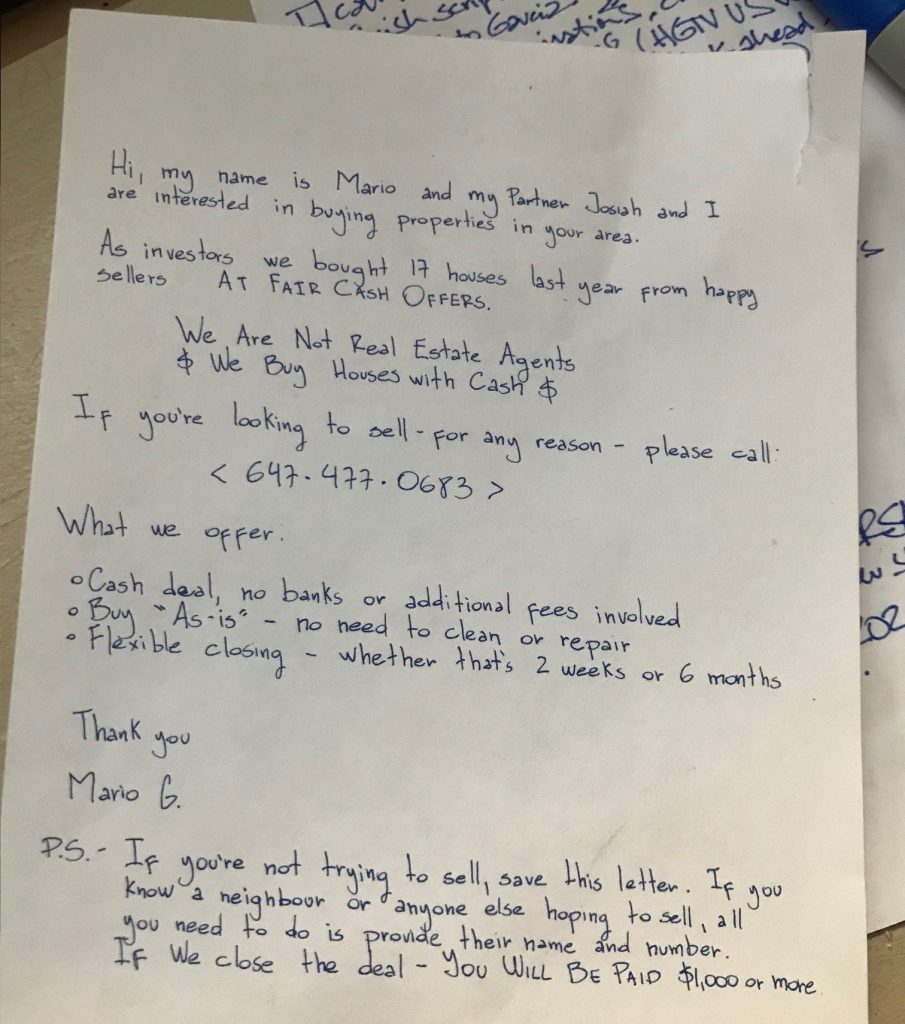 I can
ish scrip
to Garcia
inations,
G (HGTV US
ahead
Hi, my name is Mario and my Partner Josiah and I
are interested in buying properties in your area.
As investors we bought 17 houses last year from happy
sellers AT FAIR CASH OFFERS.
We Are Not Real Estate Agents
$ We Buy Houses with Cash $
If you're looking to sell - for any reason - please call:
< 647.477.0683 >
What we offer:
• Cash deal, no banks or additional fees involved
• Buy "As-is" - no need to clean or repair
• Flexible closing - whether that's 2 weeks or 6 months
Thank you
Mario G.
P.S. - If you're not trying to sell, save this letter. If you
know a neighbour or anyone else hoping to sell, all
you need to do is provide their name and number.
If We close the deal - YOU WILL BE PAID $1,000 or more.